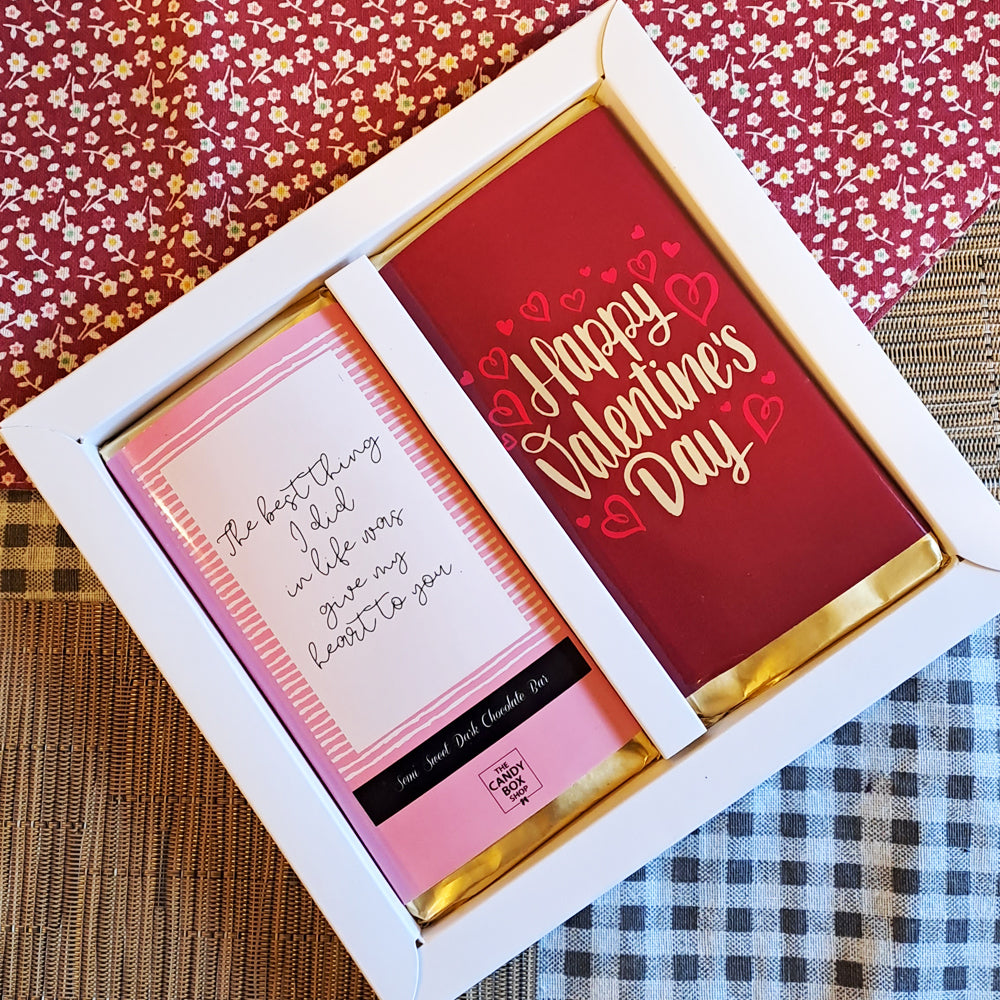 The best thing
I did
in life was
give my
heart to you..
Semi Sweet Dark Chocolate Bar
THE
CANDY
BOX
SHOP
Happy
Valentine's
Day